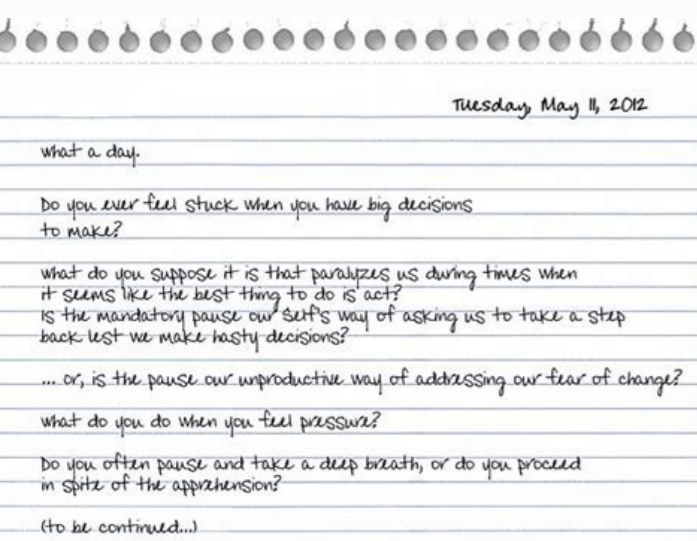 Tuesday, May 11, 2012
what a day.
Do you ever feel stuck when you have big decisions
to make?
what do you suppose it is that paralyzes us during times when
it seems like the best thing to do is act?
Is the mandatory pause our self's way of asking us to take a step
back lest we make hasty decisions?
... or, is the pause our unproductive way of addressing our fear of change?
what do you do when you feel pressure?
Do you often pause and take a deep breath, or do you proceed
in spite of the apprehension?
(to be continued...)